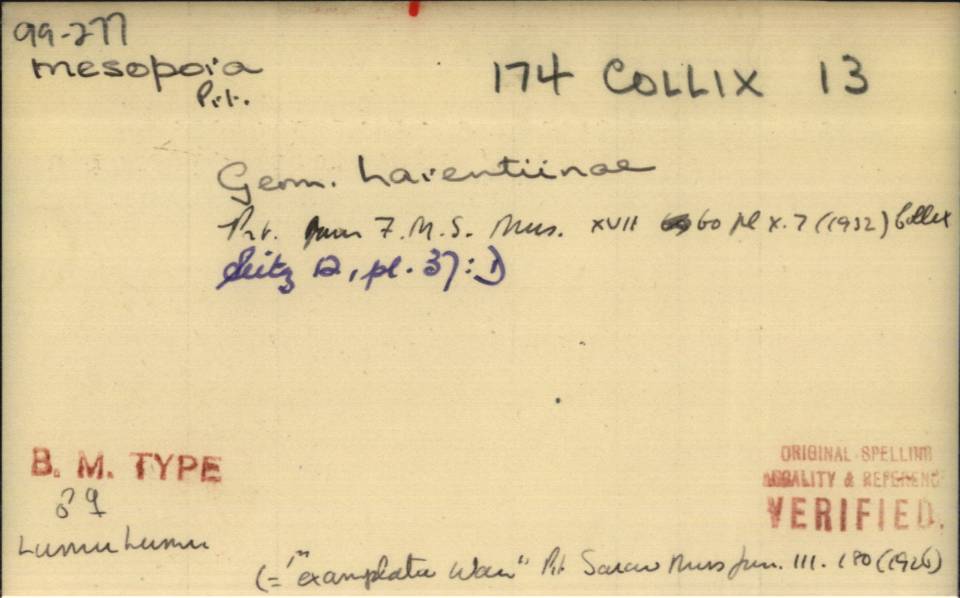 99-277
mesopora
174 COLLIX 13
Prt.
Geom. Larentiinae
Prt. Journ F.M.S. Mus. XVII 60 pl x. 7 (1932) Collix
Seitz 12, pl. 37: D
B. M. TYPE
♂ ♀
Lumu Lumu
ORIGINAL SPELLING
LOCALITY & REFERENCE
VERIFIED.
(= "examplata Warr" Prt Saraw Mus Jurn. III. 180 (1926)